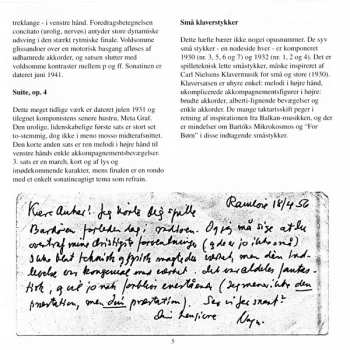 treklange - i venstre hånd. Foredragsbetegnelsen
concitato (urolig, nervøs) antyder store dynamiske
udsving i den stærkt rytmiske finale. Voldsomme
glissandoer over en motorisk basgang afløses af
udhamrede akkorder, og satsen slutter med
voldsomme kontraster mellem p og ff. Sonatinen er
dateret juni 1941.
Suite, op. 4
Dette meget tidlige værk er dateret julen 1931 og
tilegnet komponistens senere hustru, Meta Graf.
Den urolige, lidenskabelige første sats er stort set
to-stemmig, dog med i meno mosso midterafsnittet.
Den korte anden sats er ren melodi i højre hånd til
venstre hånds enkle akkompagnementsbevægelser.
3. sats er en march, kort og af lys og
imødekommende karakter, mens finalen er en rondo
med et enkelt sonatineagtigt tema som refrain.
Små klaverstykker
Dette hæfte bærer ikke nogei opusnummer. De syv
små stykker - en nodeside hver - er komponeret
1930 (nr. 3, 5, 6 og 7) og 1932 (nr. 1, 2 og 4). Det er
spilleteknisk lette småstykker, måske inspireret af
Carl Nielsens Klavermusik for små og store (1930).
Klaversatsen er uhyre enkel: melodi i højre hånd,
ukomplicerede akkompagnementsfigurer i højre:
brudte akkorder, alberti-lignende bevægelse og
enkle akkorder. De mange taktartskift peger i
retning af inspirationen fra Balkan-musikken, og der
er mindelser om Bartóks Mikrokosmos og "For
Børn" i disse indtagende småstykker.
Ramløse 18/4 56
Kære Anker! Jeg hørte dig spille
Bartóken forleden dag i radioen. Og jeg må sige at du
overtraf mine dristigste forventninger
prestation, men din præstation). Ses vi jer snart?
Din hengivne
5